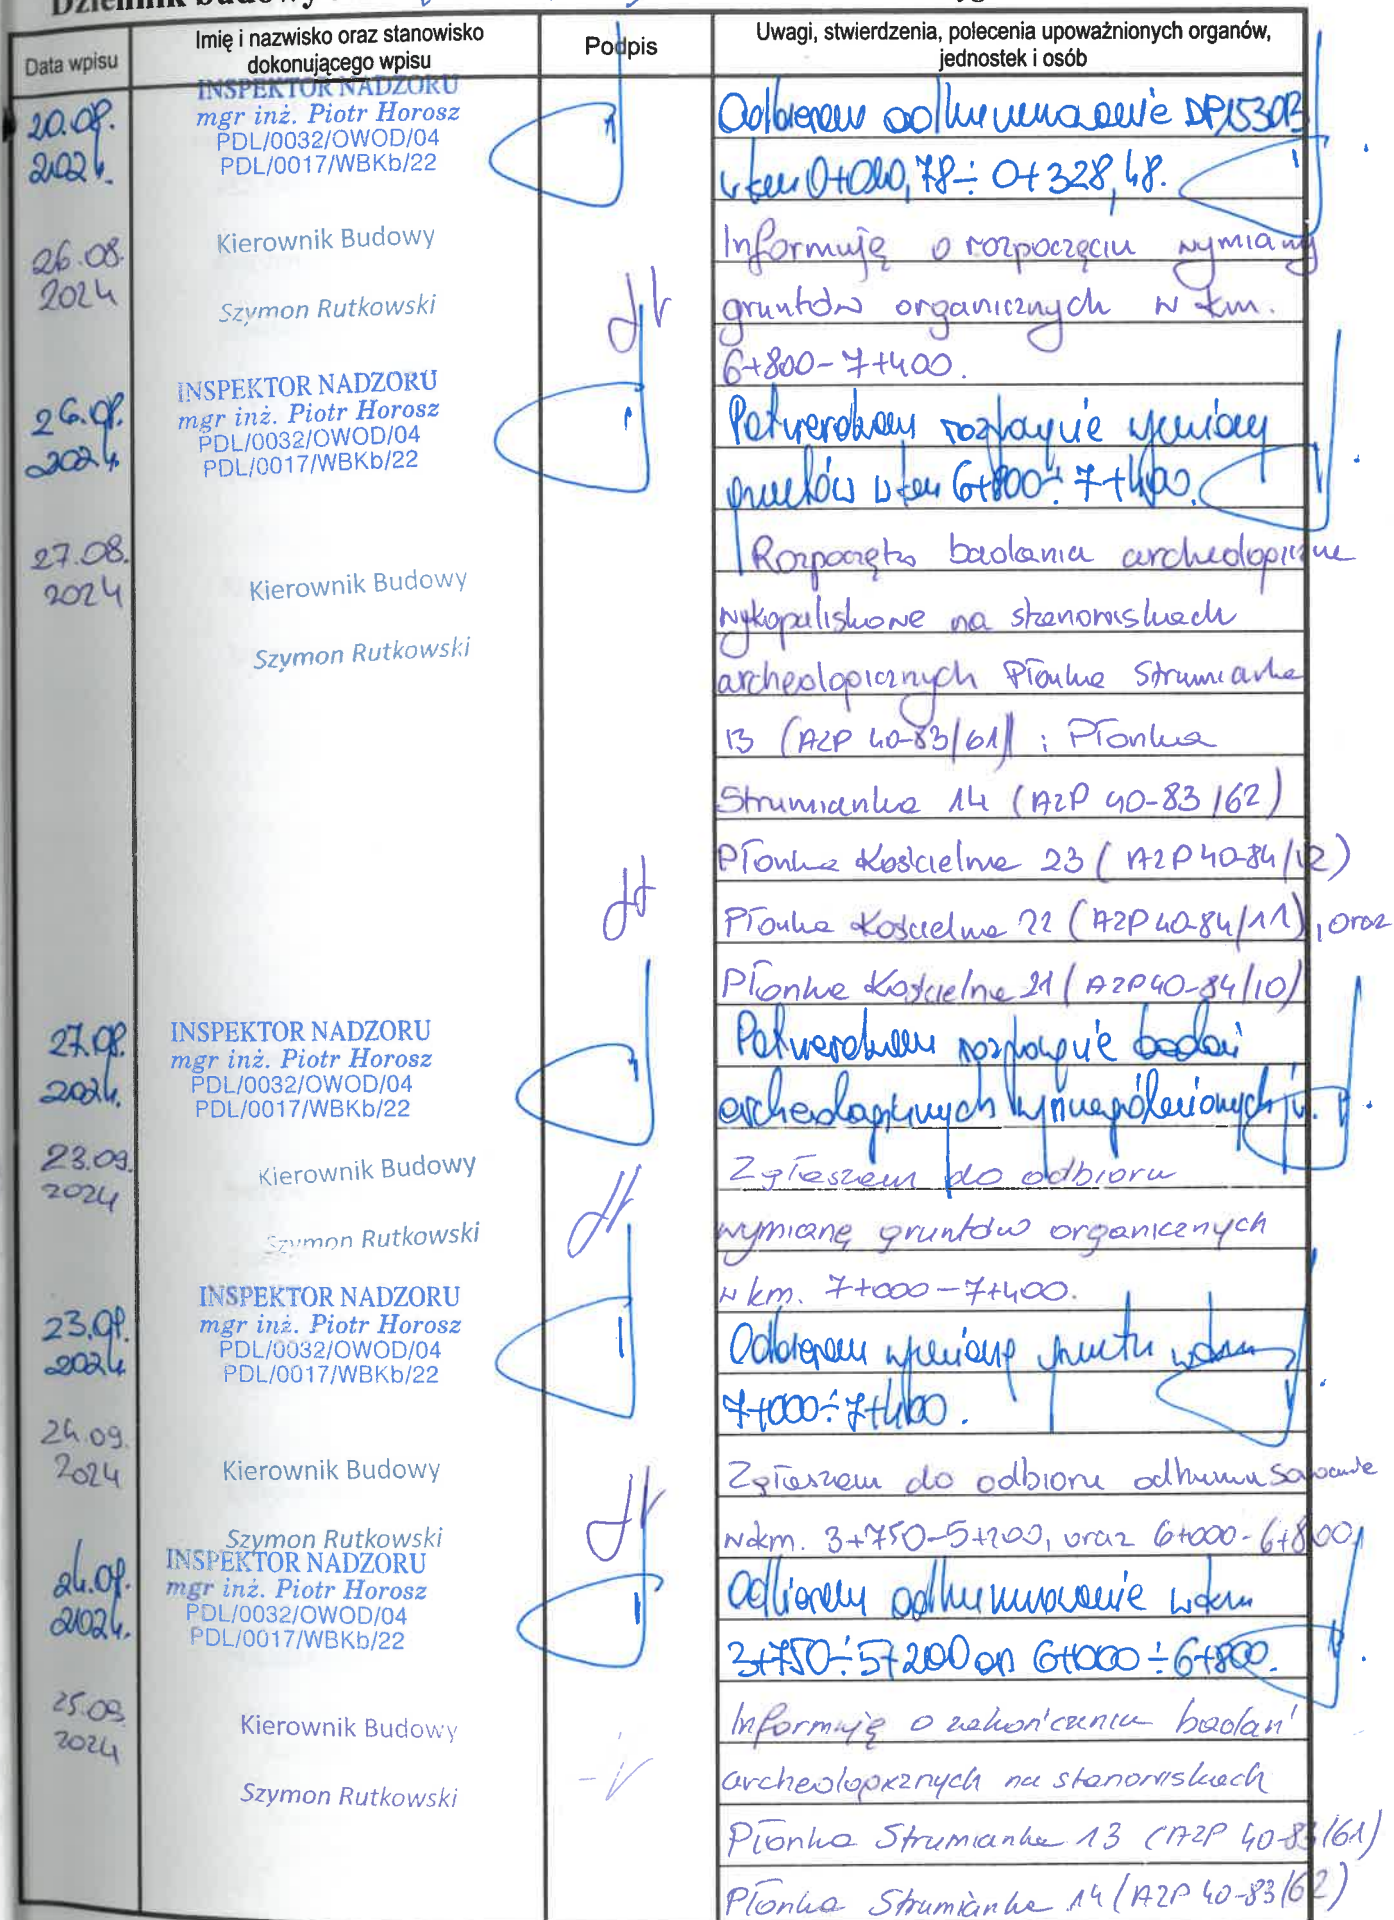 Dziennik budowy
Data wpisu
Imię i nazwisko oraz stanowisko
dokonującego wpisu
Podpis
Uwagi, stwierdzenia, polecenia upoważnionych organów,
jednostek i osób
20.08.
2024.
INSPEKTOR NADZORU
mgr inż. Piotr Horosz
PDL/0032/OWOD/04
PDL/0017/WBKb/22
Odbieram odhumusowanie DP1530B
w km 0+020,78÷0+328,48.
26.08.
2024
Kierownik Budowy
Szymon Rutkowski
Informuję o rozpoczęciu wymiany
gruntów organicznych w km.
6+800-7+400.
26.08.
2024.
INSPEKTOR NADZORU
mgr inż. Piotr Horosz
PDL/0032/OWOD/04
PDL/0017/WBKb/22
Potwierdzam rozpoczęcie wymiany
gruntów w km 6+800÷7+400.
27.08.
2024
Kierownik Budowy
Szymon Rutkowski
Rozpoczęto badania archeologiczne
wykopaliskowe na stanowiskach
archeologicznych Płonka Strumianka
13 (AZP 40-83/61) i Płonka
Strumianka 14 (AZP 40-83/62)
Płonka Kościelna 23 (AZP 40-84/12)
Płonka Kościelna 22 (AZP 40-84/11), oraz
Płonka Kościelna 21 (AZP 40-84/10)
27.08.
2024.
INSPEKTOR NADZORU
mgr inż. Piotr Horosz
PDL/0032/OWOD/04
PDL/0017/WBKb/22
Potwierdzam rozpoczęcie badań
archeologicznych wyszczególnionych j.w.
23.09.
2024
Kierownik Budowy
Szymon Rutkowski
Zgłaszam do odbioru
wymianę gruntów organicznych
w km. 7+000-7+400.
23.09.
2024
INSPEKTOR NADZORU
mgr inż. Piotr Horosz
PDL/0032/OWOD/04
PDL/0017/WBKb/22
Odbieram wymianę gruntu w km
7+000÷7+400.
24.09.
2024
Kierownik Budowy
Szymon Rutkowski
Zgłaszam do odbioru odhumusowanie
w km. 3+750-5+200, oraz 6+000-6+800.
24.09.
2024.
INSPEKTOR NADZORU
mgr inż. Piotr Horosz
PDL/0032/OWOD/04
PDL/0017/WBKb/22
Odbieram odhumusowanie w km
3+750÷5+200 6+000÷6+800.
25.09
2024
Kierownik Budowy
Szymon Rutkowski
Informuję o zakończeniu badań
archeologicznych na stanowiskach
Płonka Strumianka 13 (AZP 40-83/61)
Płonka Strumianka 14 (AZP 40-83/62)